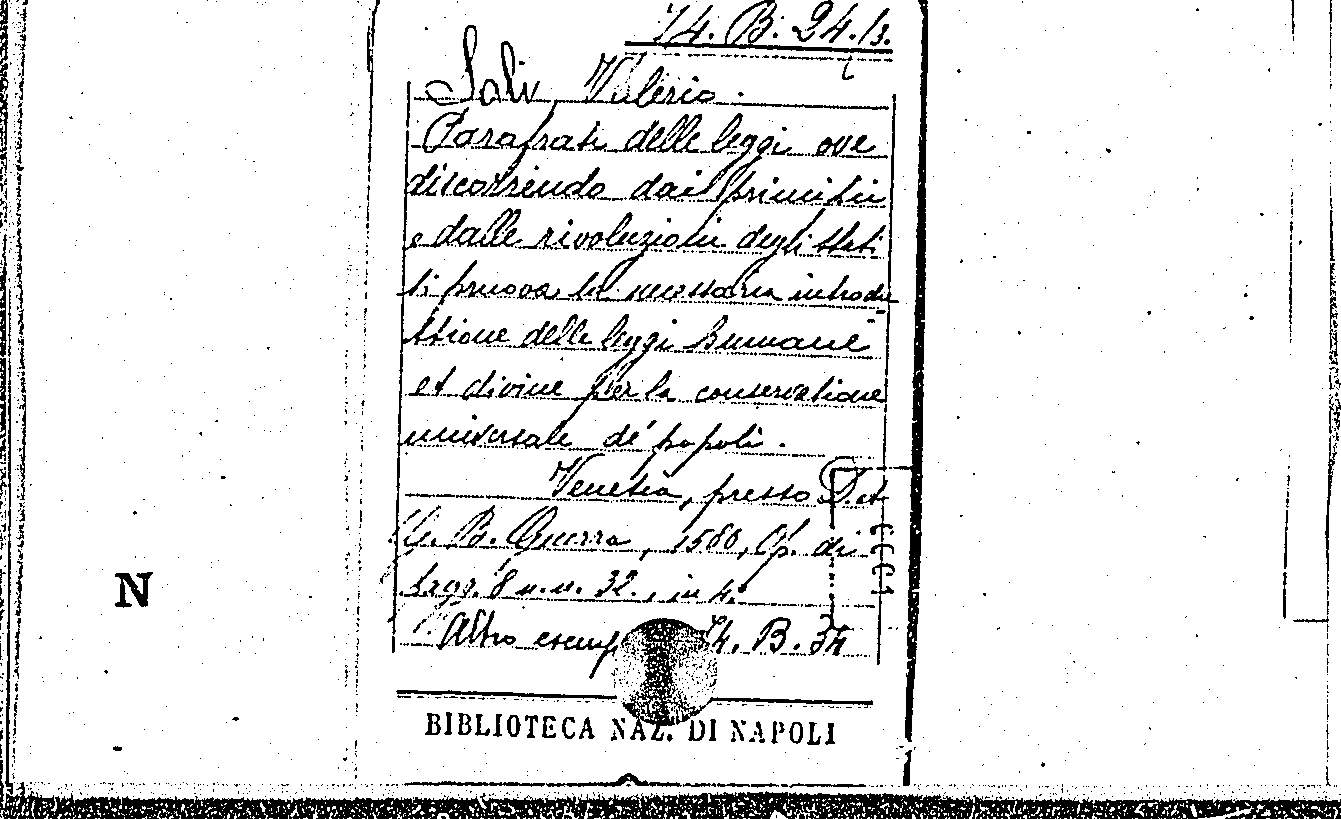 74. B. 24./3.
Saliv, Valerio.
Parafrasi delle leggi ove
discorrendo dai principii
e dalle rivoluzioni degli stati
si pruova la necessaria introdu
ttione delle leggi humane
et divine per la conservatione
universale de' popoli.
Venetia, presso D. et
G. B. Guerra, 1586, Op. di
segr. 8 n. n. 32., in 4.
Altro esemp 74. B. 34
N
BIBLIOTECA NAZ. DI NAPOLI